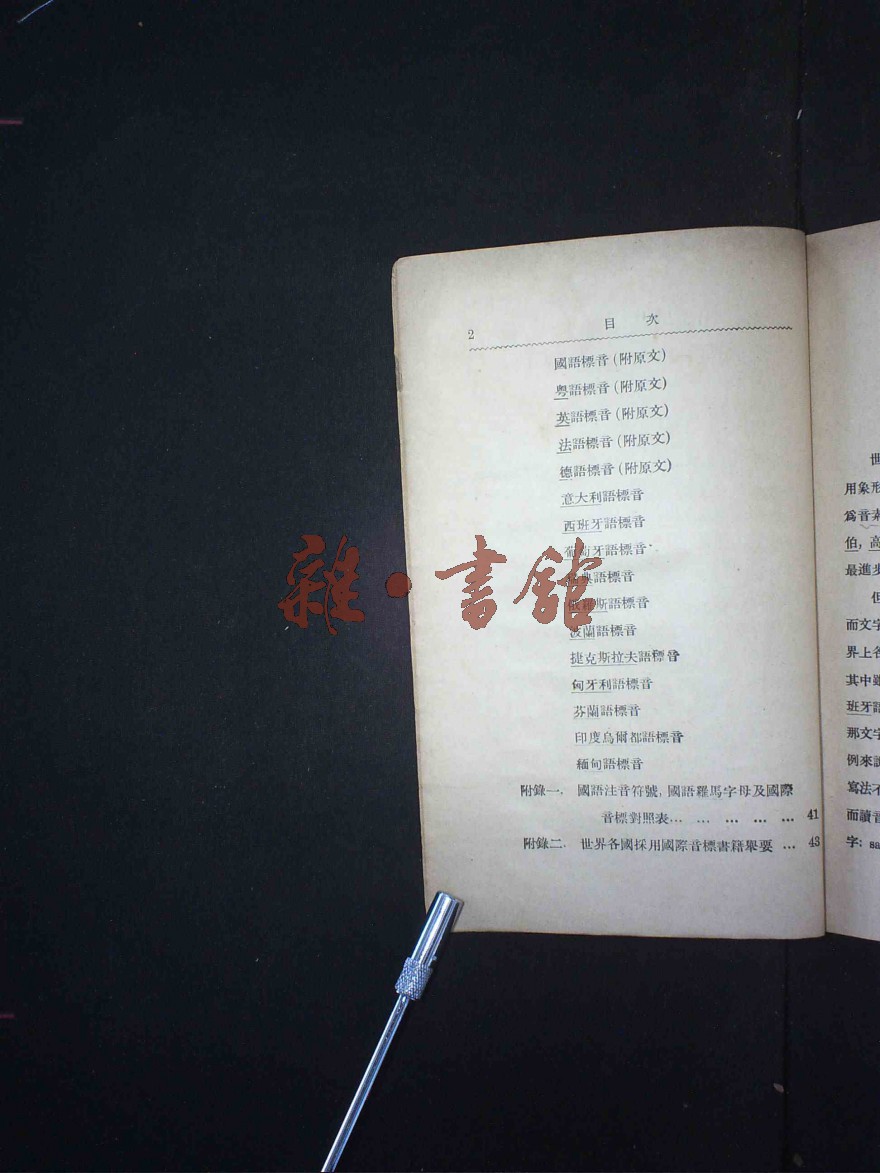 2
目 次
國語標音(附原文)
粤語標音(附原文)
英語標音(附原文)
法語標音(附原文)
德語標音(附原文)
意大利語標音
西班牙語標音
葡萄牙語標音
瑞典語標音
俄羅斯語標音
波蘭語標音
捷克斯拉夫語標音
匈牙利語標音
芬蘭語標音
印度烏爾都語標音
緬甸語標音
附錄一. 國語注音符號, 國語羅馬字母及國際
音標對照表… … … … … 41
附錄二. 世界各國採用國際音標書籍舉要 … 43
雜·書館
世
用象形
爲音素
伯, 高
最進步
但
而文字
界上各
其中雖
班牙語
那文字
例來說
寫法不
而讀音
字: sa